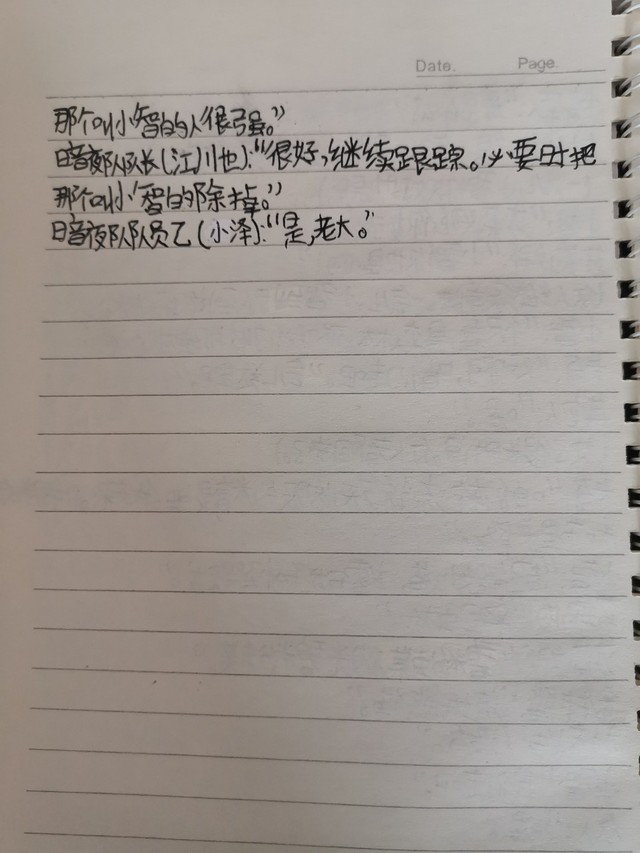 Date. Page.
那个叫小智的人很强。”
暗夜队队长(江川也):“很好,继续跟踪。必要时把
那个叫小智的除掉。”
暗夜队队员乙(小泽):“是,老大。”